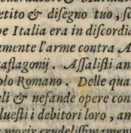 etito & disegno tuo, s
pe Italia era in discordi
amente l'arme contra A
aflagonij. Assalisti an
olo Romano. Delle qua
eli & nefande opere con
luesti i debitori loro, an